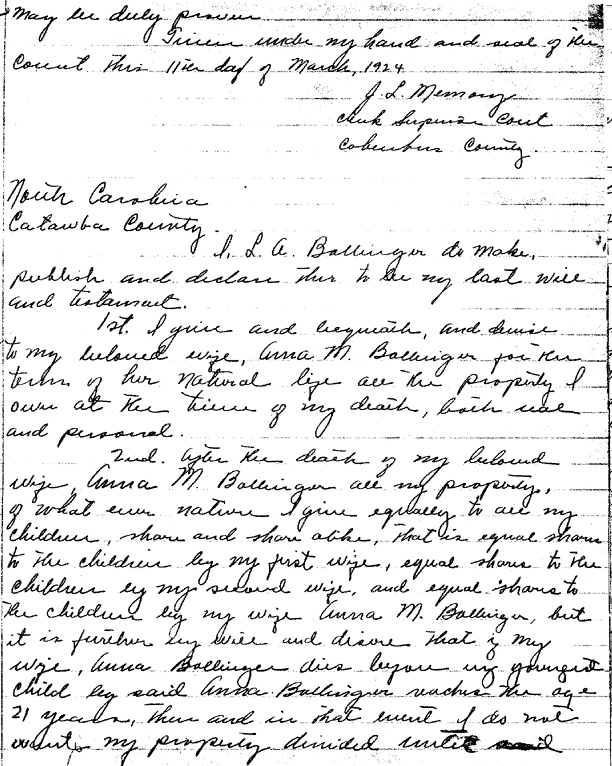 May be duly proven
Given under my hand and seal of the
Court this 11th day of March, 1924
J. L. Memory
Clerk Superior Court
Columbus County.
North Carolina
Catawba County.
I, L. A. Bollinger do make,
publish and declare this to be my last will
and testament.
1st. I give and bequeath, and devise
to my beloved wife, Anna M. Bollinger for the
term of her natural life all the property I
own at the time of my death, both real
and personal.
2nd. After the death of my beloved
wife, Anna M. Bollinger all my property,
of what ever nature I give equally to all my
children, share and share alike, that is equal shares
to the children by my first wife, equal shares to the
children by my second wife, and equal shares to
the children by my wife Anna M. Bollinger, but
it is further my will and desire that if my
wife, Anna Bollinger dies before my youngest
child by said Anna Bollinger reaches the age
21 years, then and in that event I do not
want my property divided until said